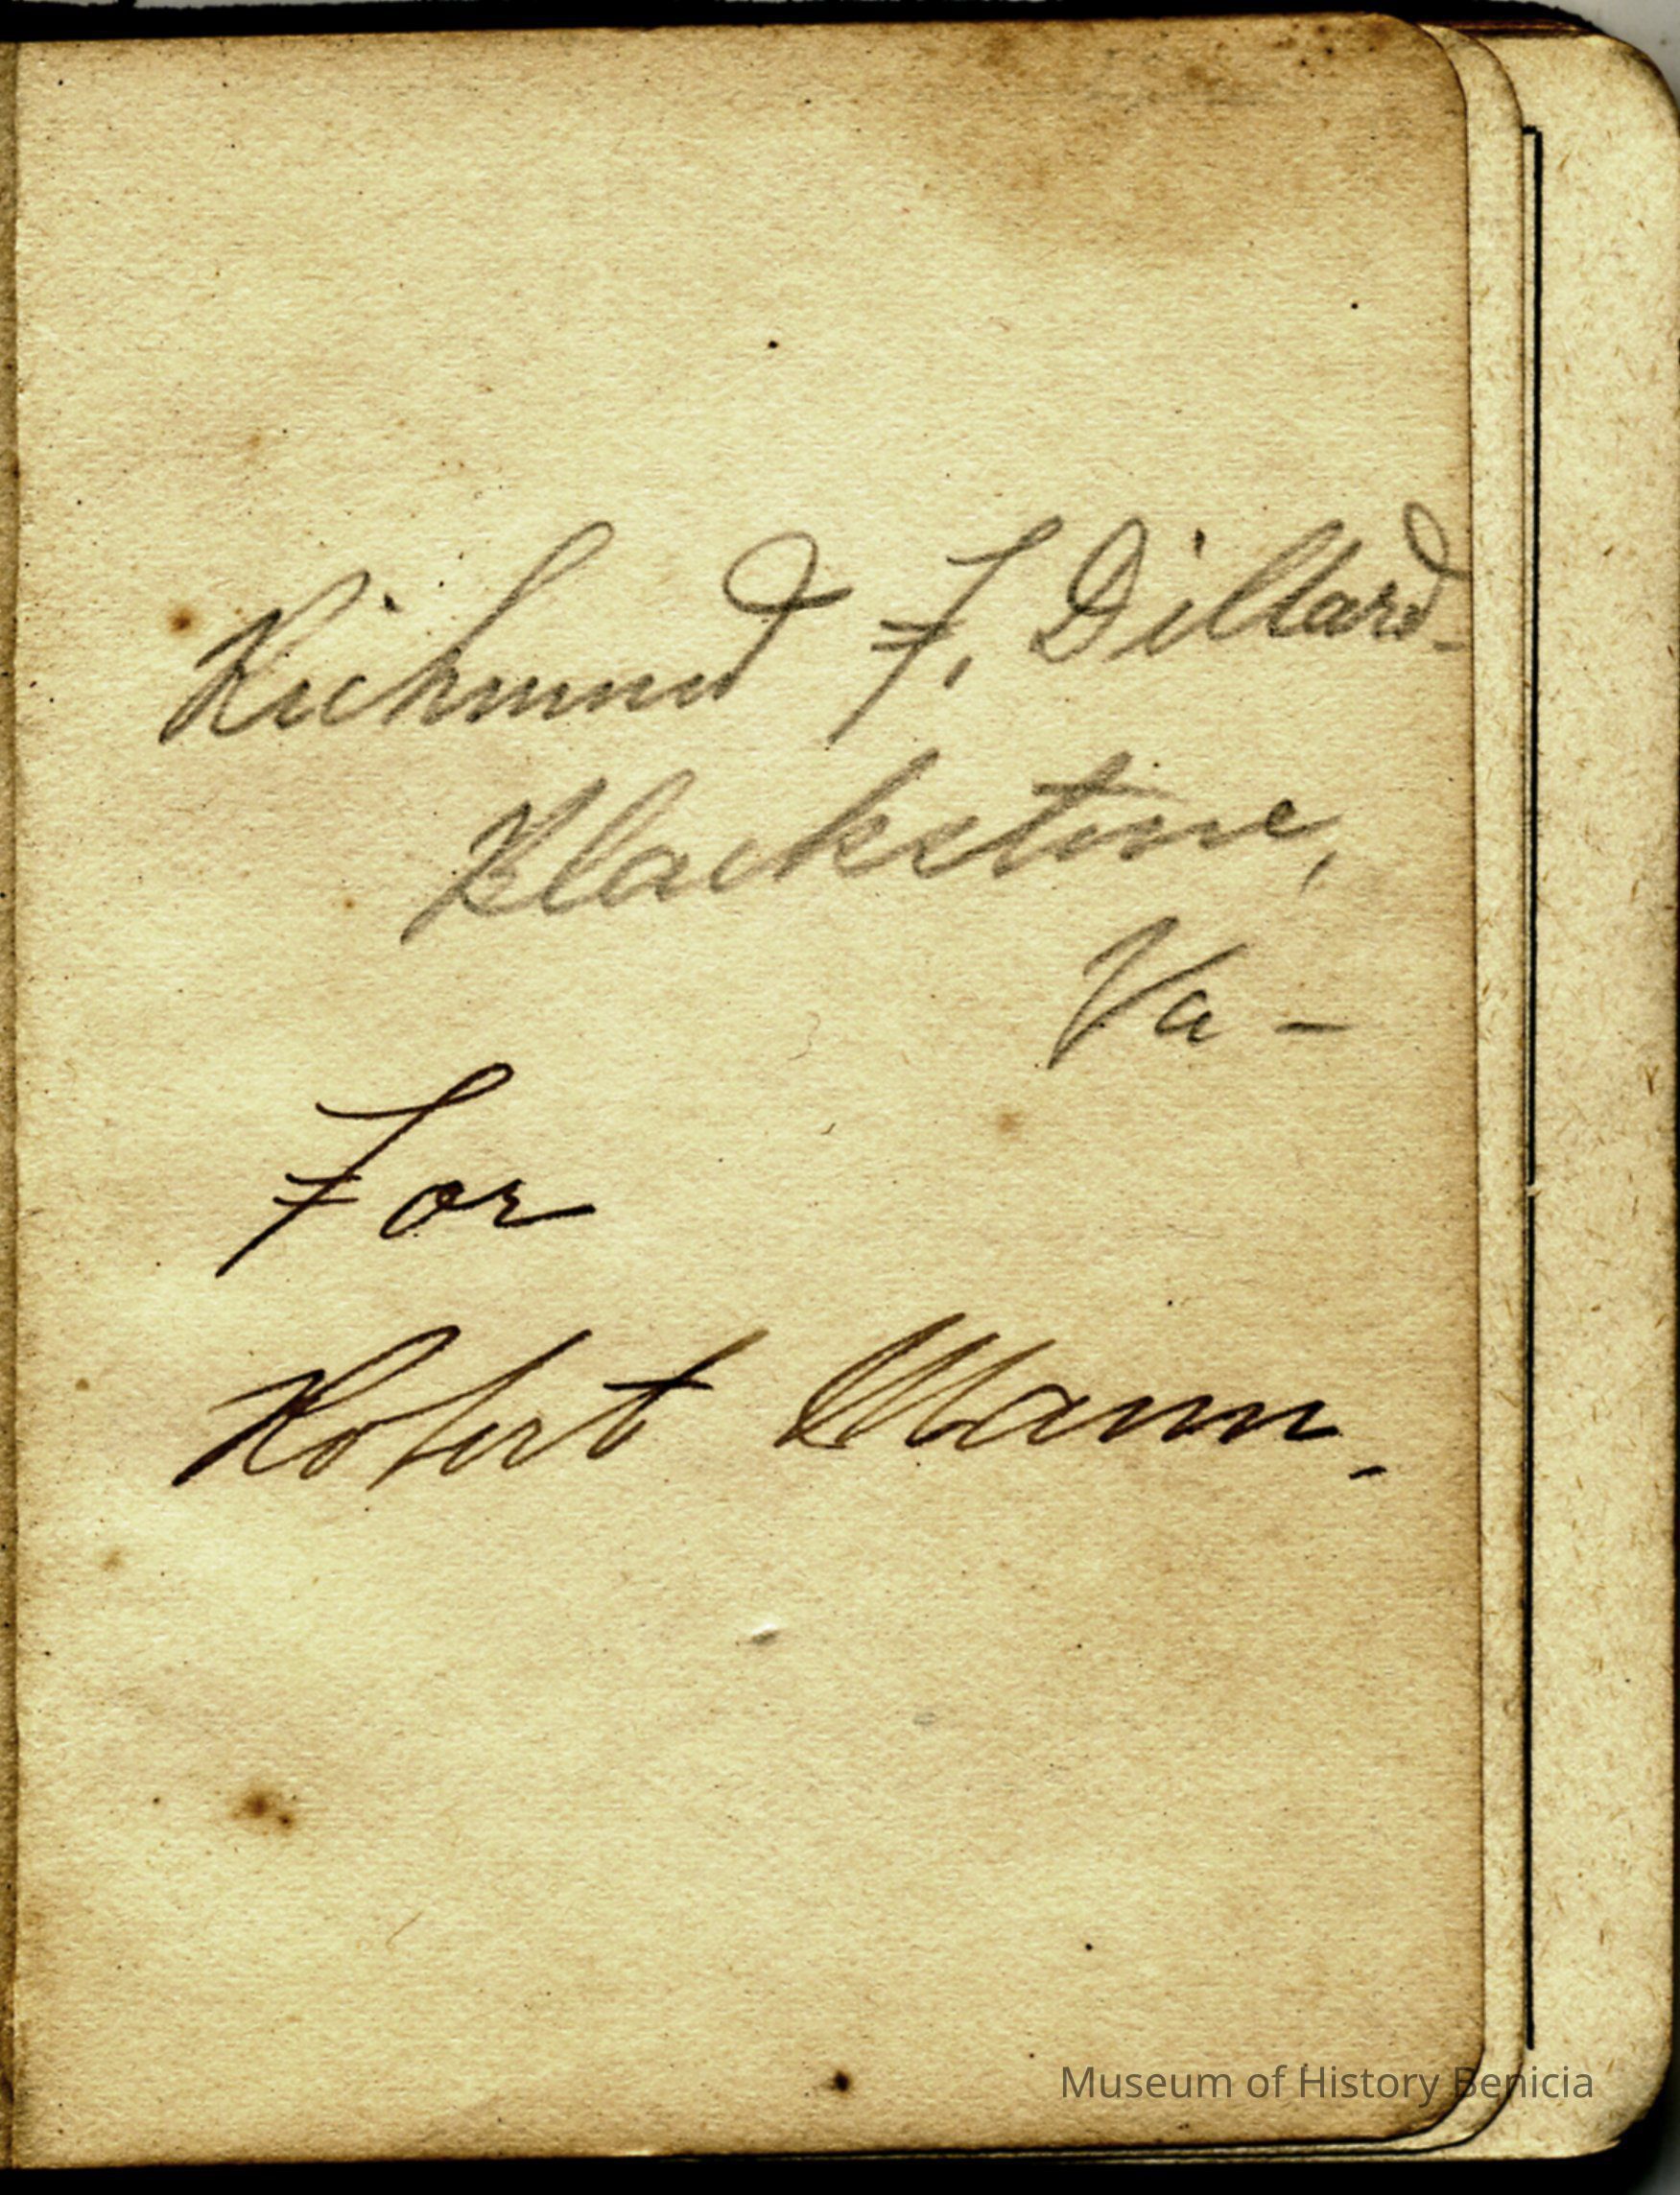 Richmond F. Dillard-
Blackstone,
Va -
For
Robert Mann.
Museum of History Benicia